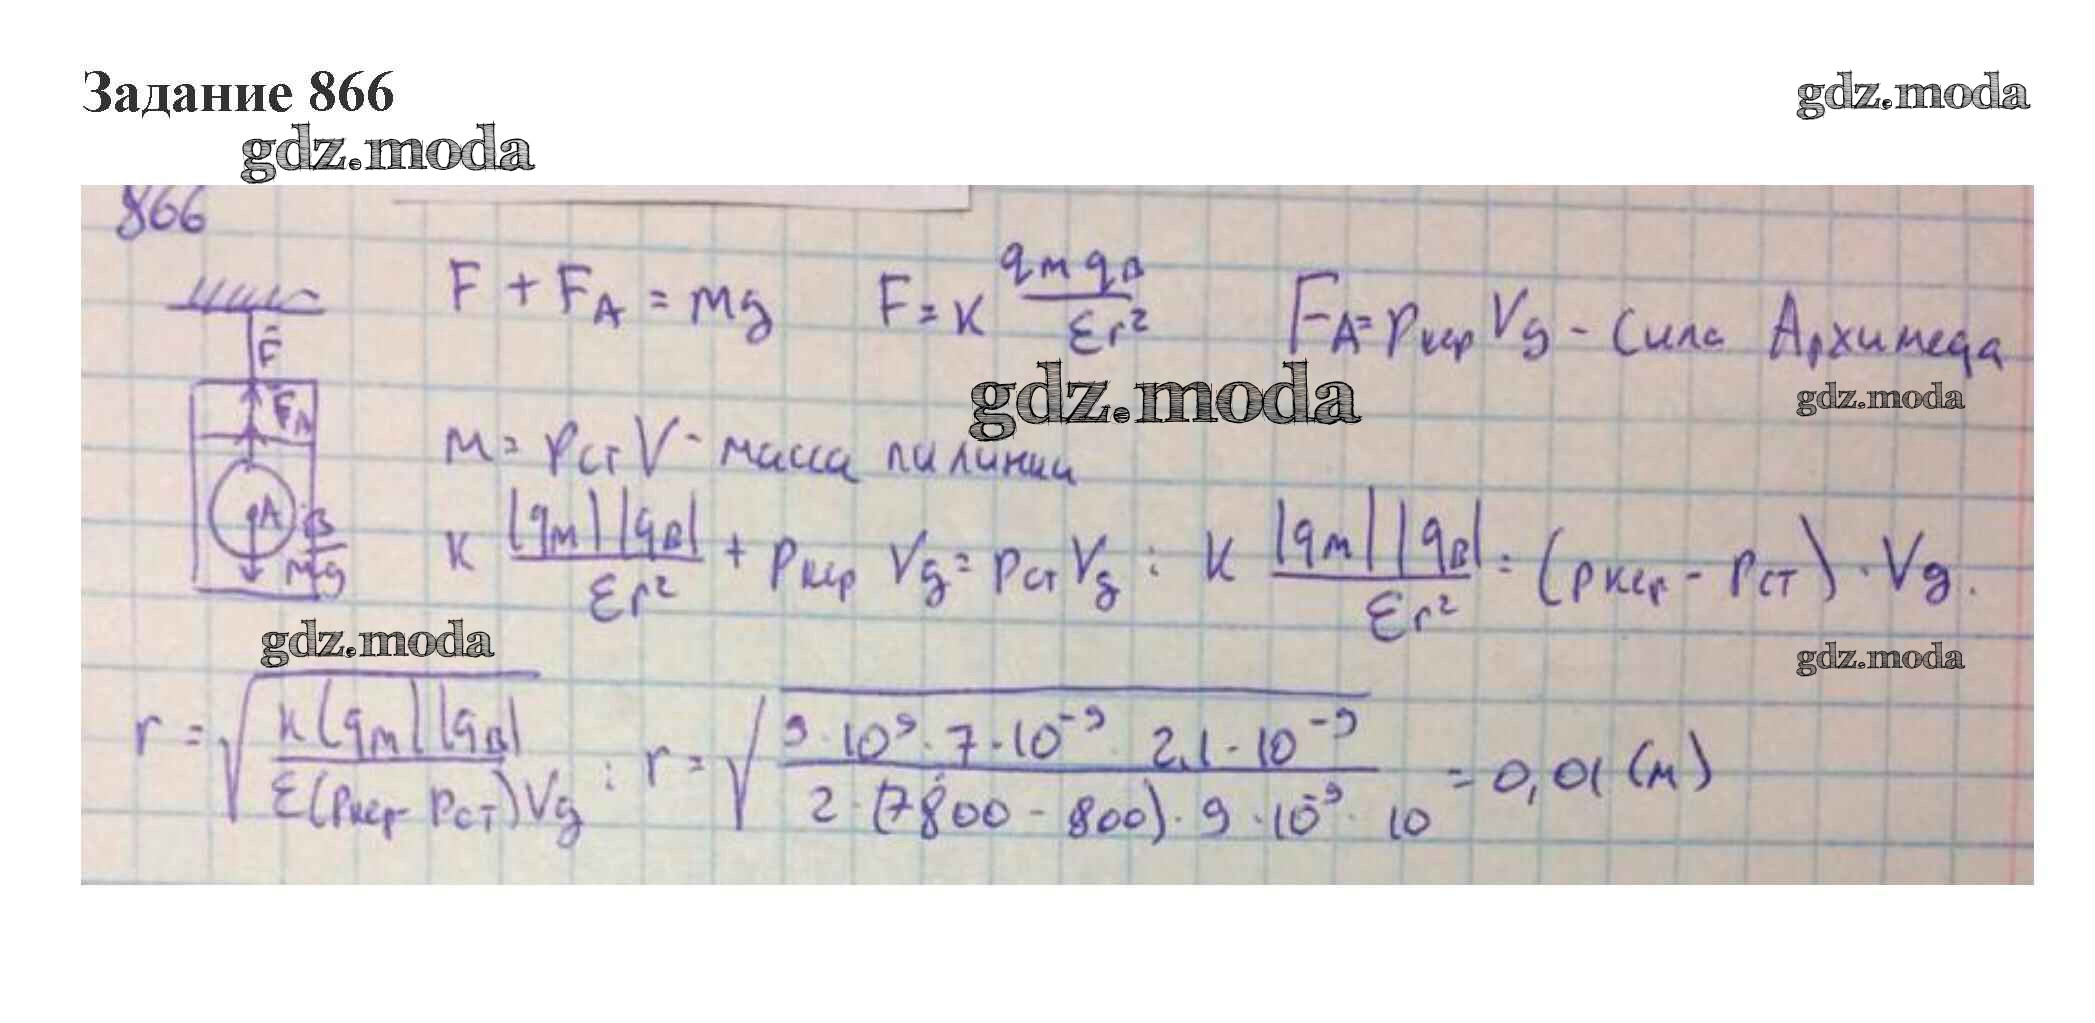 Задание 866
gdz.moda
gdz.moda
866
F + F_A = mg F = к q_м q_в / εr² F_A = ρкер Vg - Сила Архимеда
gdz.moda
gdz.moda
F
F_A
A
B
mg
м = ρст V - масса пилинки
к |q_м| |q_в| / εr² + ρкер Vg = ρст Vg ; к |q_м| |q_в| / εr² = (ρкер - ρст) · Vg.
gdz.moda
gdz.moda
r = √(к |q_м| |q_в| / ε(ρкер - ρст) Vg) ; r = √(9·10⁹ · 7·10⁻⁹ · 2,1·10⁻⁹ / 2·(7800 - 800) · 9·10⁻⁹ · 10) = 0,01 (м)